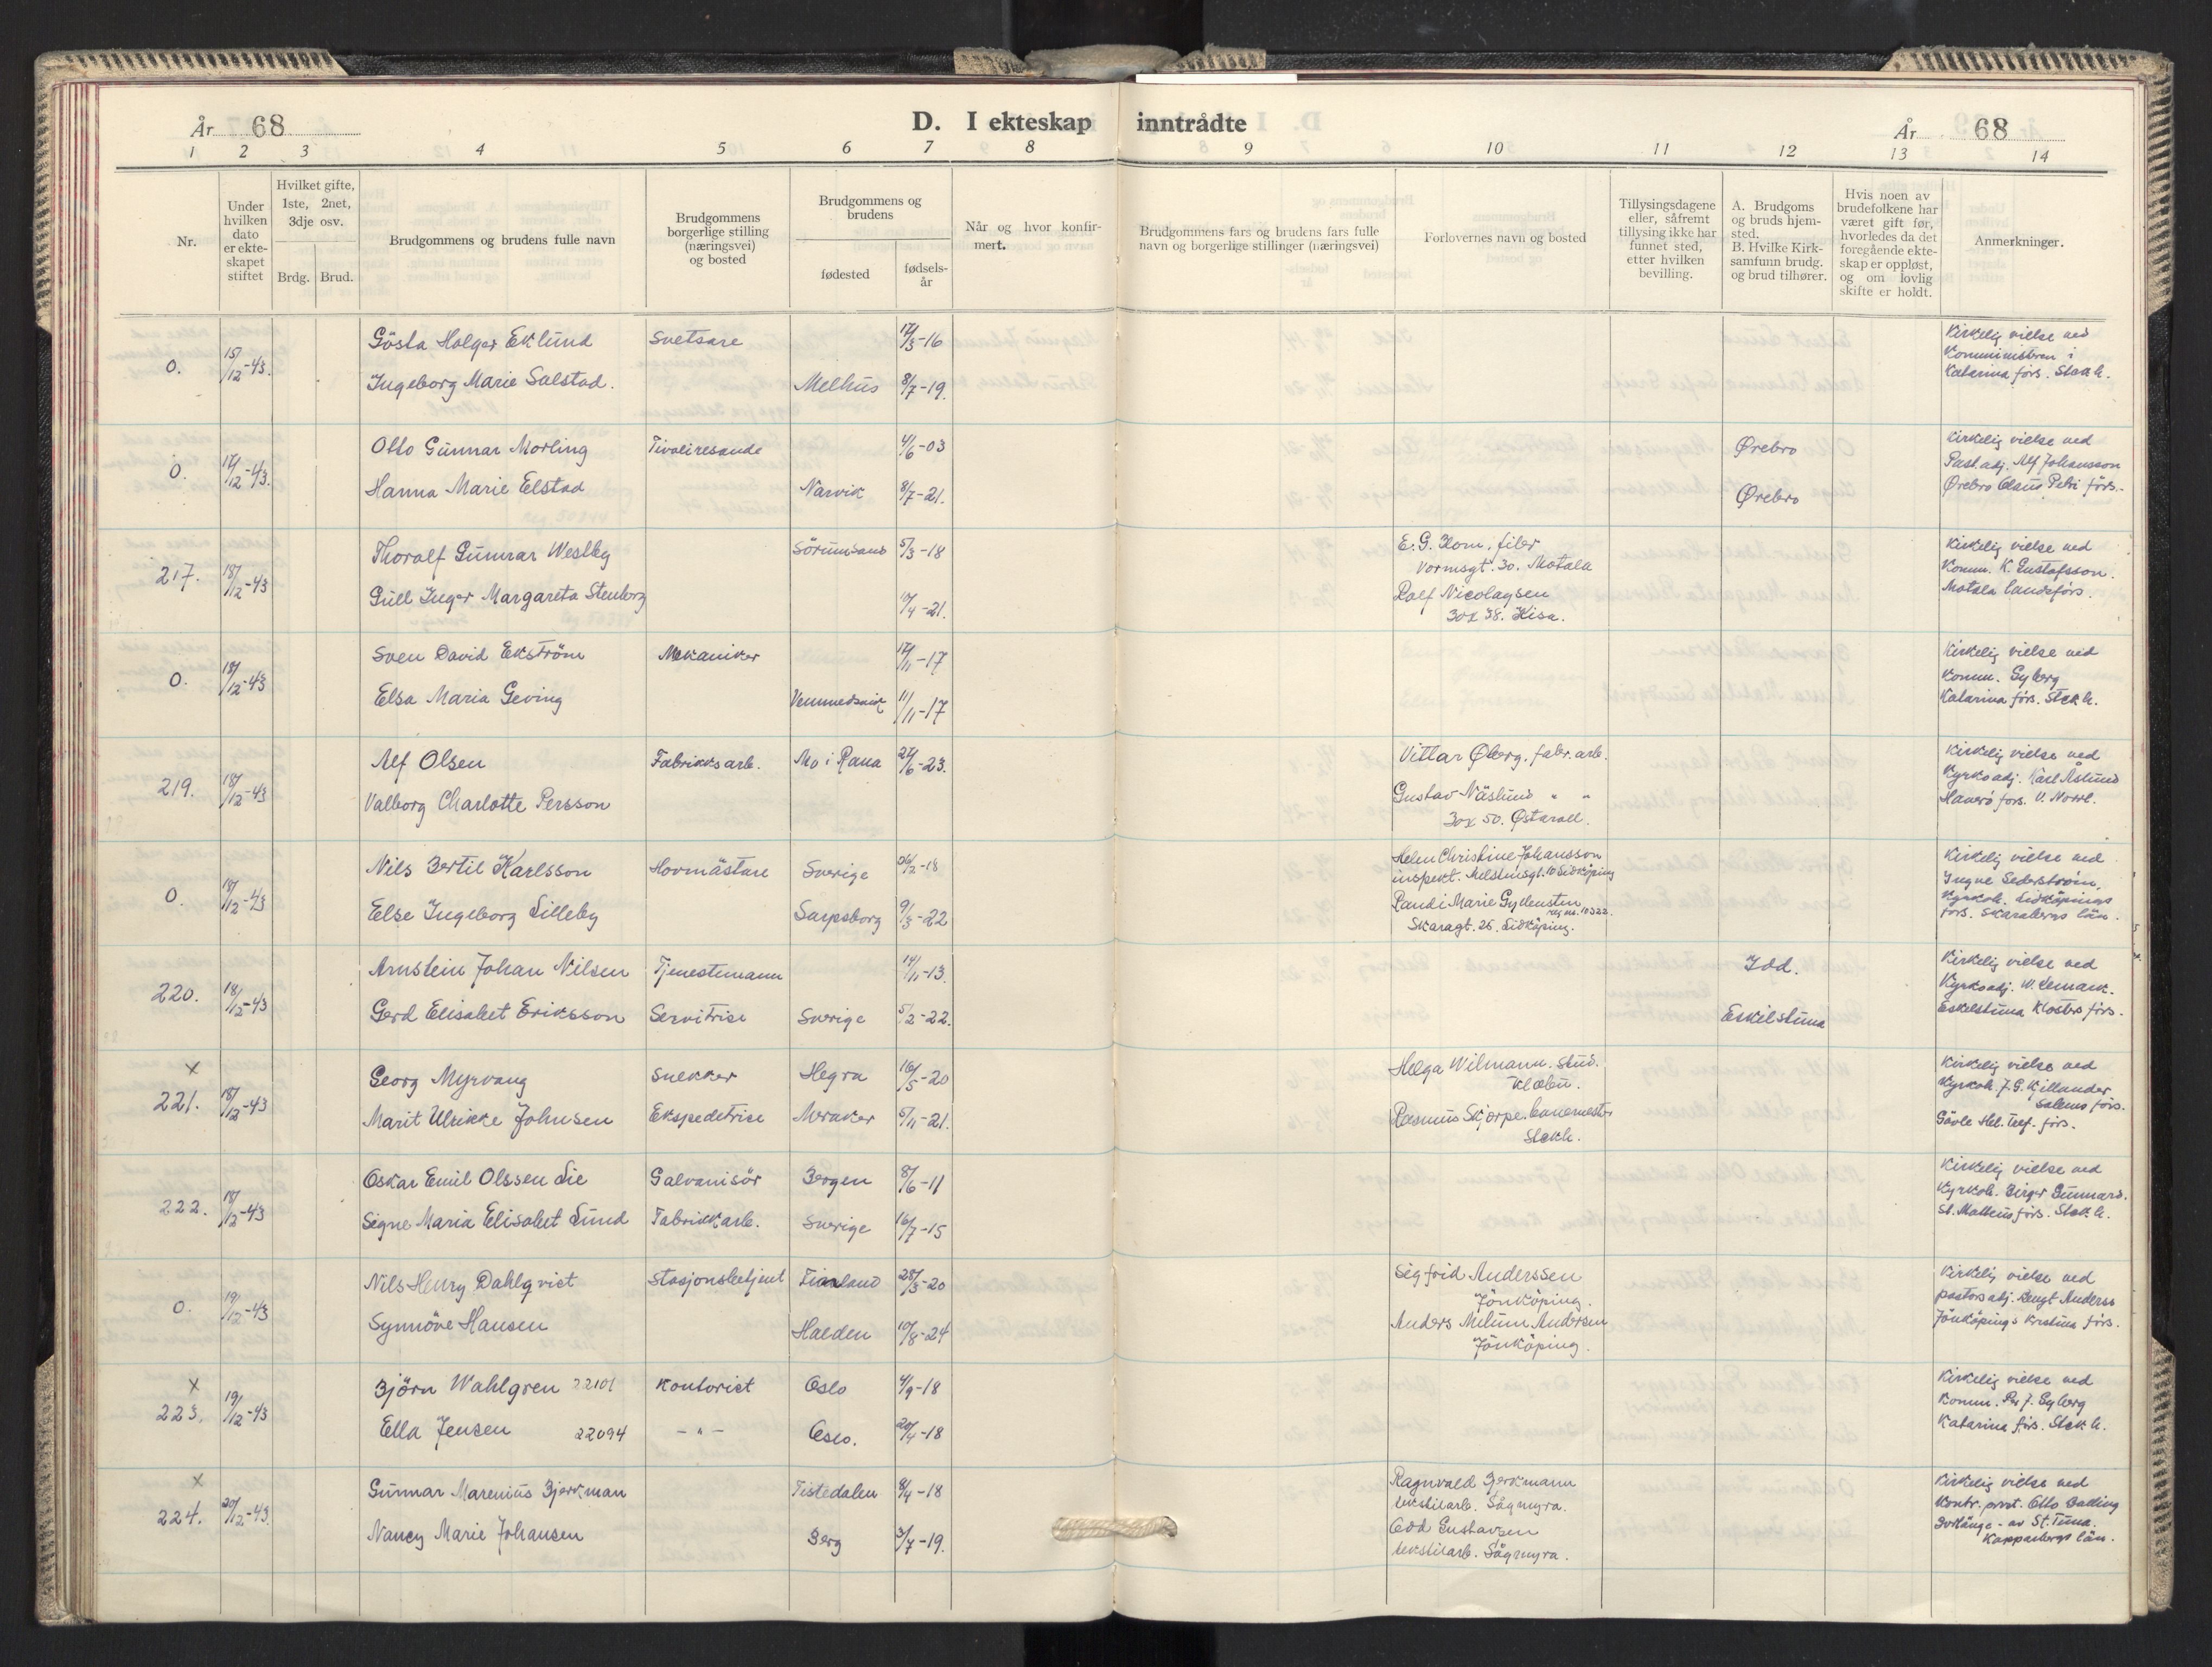 År 68
D. I ekteskap inntrådte
År 68
1 2 3 4 5 6 7 8 9 10 11 12 13 14
Nr.
Under hvilken dato er ekteskapet stiftet
Hvilket gifte, 1ste, 2net, 3dje osv.
Brdg. Brud.
Brudgommens og brudens fulle navn
Brudgommens borgerlige stilling (næringsvei) og bosted
Brudgommens og brudens
fødested
fødselsår
Når og hvor konfirmert.
Brudgommens fars og brudens fars fulle navn og borgerlige stillinger (næringsvei)
Forlovernes navn og bosted
Tillysingsdagene eller, såfremt tillysing ikke har funnet sted, etter hvilken bevilling.
A. Brudgoms og bruds hjemsted.
B. Hvilke Kirksamfunn brudg. og brud tilhører.
Hvis noen av brudefolkene har været gift før, hvorledes da det foregående ekteskap er oppløst, og om lovlig skifte er holdt.
Anmerkninger.
0. 15/12-43. Gösta Holger Eklund Svetsare 17/3-16
Ingeborg Marie Salstad. Melhus 8/7-19.
Kirkelig vielse ved
Komministren i
Katarina förs. Stockh.
0. 17/12-43. Otto Gunnar Morling Tivoliresande 4/6-03 Ørebro
Hanna Marie Elstad Narvik 8/7-21. Ørebro
Kirkelig vielse ved
Past. adj. Alf Johansson
Ørebro Olaus Petri förs.
217. 18/12-43 Thoralf Gunnar Westby Sörumsand 5/3-18
Gull Inger Margareta Stenborg 17/4-21.
E. G. Hom, filer
Vormsgt. 30. Motala
Rolf Nicolaysen
Box 38. Kisa.
Kirkelig vielse ved
Komm. K. Gustafsson.
Motala landsförs.
0. 18/12-43 Sven David Ekström Mekaniker 17/11-17
Elsa Maria Geving Vemundvik 11/11-17
Kirkelig vielse ved
Komm. Gyberg
Katarina förs. Stckh.
219. 18/12-43 Alf Olsen Fabrikksarb. Mo i Rana 27/6-23.
Valborg Charlotte Persson
Vittar Øberg, fabr. arb.
Gustav Näslund " "
Box 50. Østavall.
Kirkelig vielse ved
Kyrkoadj. Karl Åslund
Haverö förs. V. Norrl.
0. 18/12-43 Nils Bertil Karlsson Hovmästare Sverige 26/2-18
Else Ingeborg Lilleby Sarpsborg 9/3-22
Helen Christine Johansson
inspekt. 10 Lidköping
Randi Marie Gydensten
reg. nr. 10322.
Skaragt. 25. Lidköping.
Kirkelig vielse ved
Yngve Sederström,
Kyrkoh. Lidköpings
förs. Skarabergs län.
220. 18/12-43 Arnstein Johan Nilsen Tjenestemann 14/11-13. Idd.
Gerd Elisabet Eriksson Servitrise Sverige 5/2-22. Eskilstuna
Kirkelig vielse ved
Kyrkoadj. W. Lemark.
Eskilstuna Klosters förs.
x
221. 18/12-43 Georg Myrvang Snekker Hegra 16/5-20
Marit Ulrikke Johnsen Ekspeditrise Meraker 5/11-21.
Helga Wilmann. stud.
Klæbu.
Rasmus Skjørpe. banemester
Stckh.
Kirkelig vielse ved
Kyrkoh. J. G. Kjellander
Salems förs.
Gävle Hel. Tref. förs.
222. 18/12-43 Oskar Emil Olssen Lie Galvanisör Bergen 8/6-11
Signe Maria Elisabet Lund Fabrikkarb. Sverige 16/7-15
Kirkelig vielse ved
Kyrkoh. Birger Gunnars.
St. Matteus förs. Stckh.
0. 19/12-43 Nils Henry Dahlqvist Stasjonsbetjent Finnland 28/3-20
Synnöve Hansen Halden 10/8-24
Sigfrid Anderssen
Jönköping.
Anders Melum Andersen
Jönköping.
Kirkelig vielse ved
pastorsadj. Bengt Anderss
Jönköpings Kristina förs.
x
223. 19/12-43 Björn Wahlgren 22101 Kontorist Oslo 4/9-18
Ella Jensen 22094 - " - Oslo. 20/4-18
Kirkelig vielse ved
Komm. Per J. Gyberg
Katarina förs. Stckh.
x
224. 20/12-43. Gunnar Marenius Bjerkman Tistedalen 8/4-18
Nancy Marie Johansen Berg 3/7-19.
Ragnvald Bjerkmann
tekstilarb. Sågmyra.
Odd Gustavsen
tekstilarb. Sågmyra.
Kirkelig vielse ved
Kontr. prost. Otto Balling
Borlänge - av St. Tuna.
Kopparbergs län.